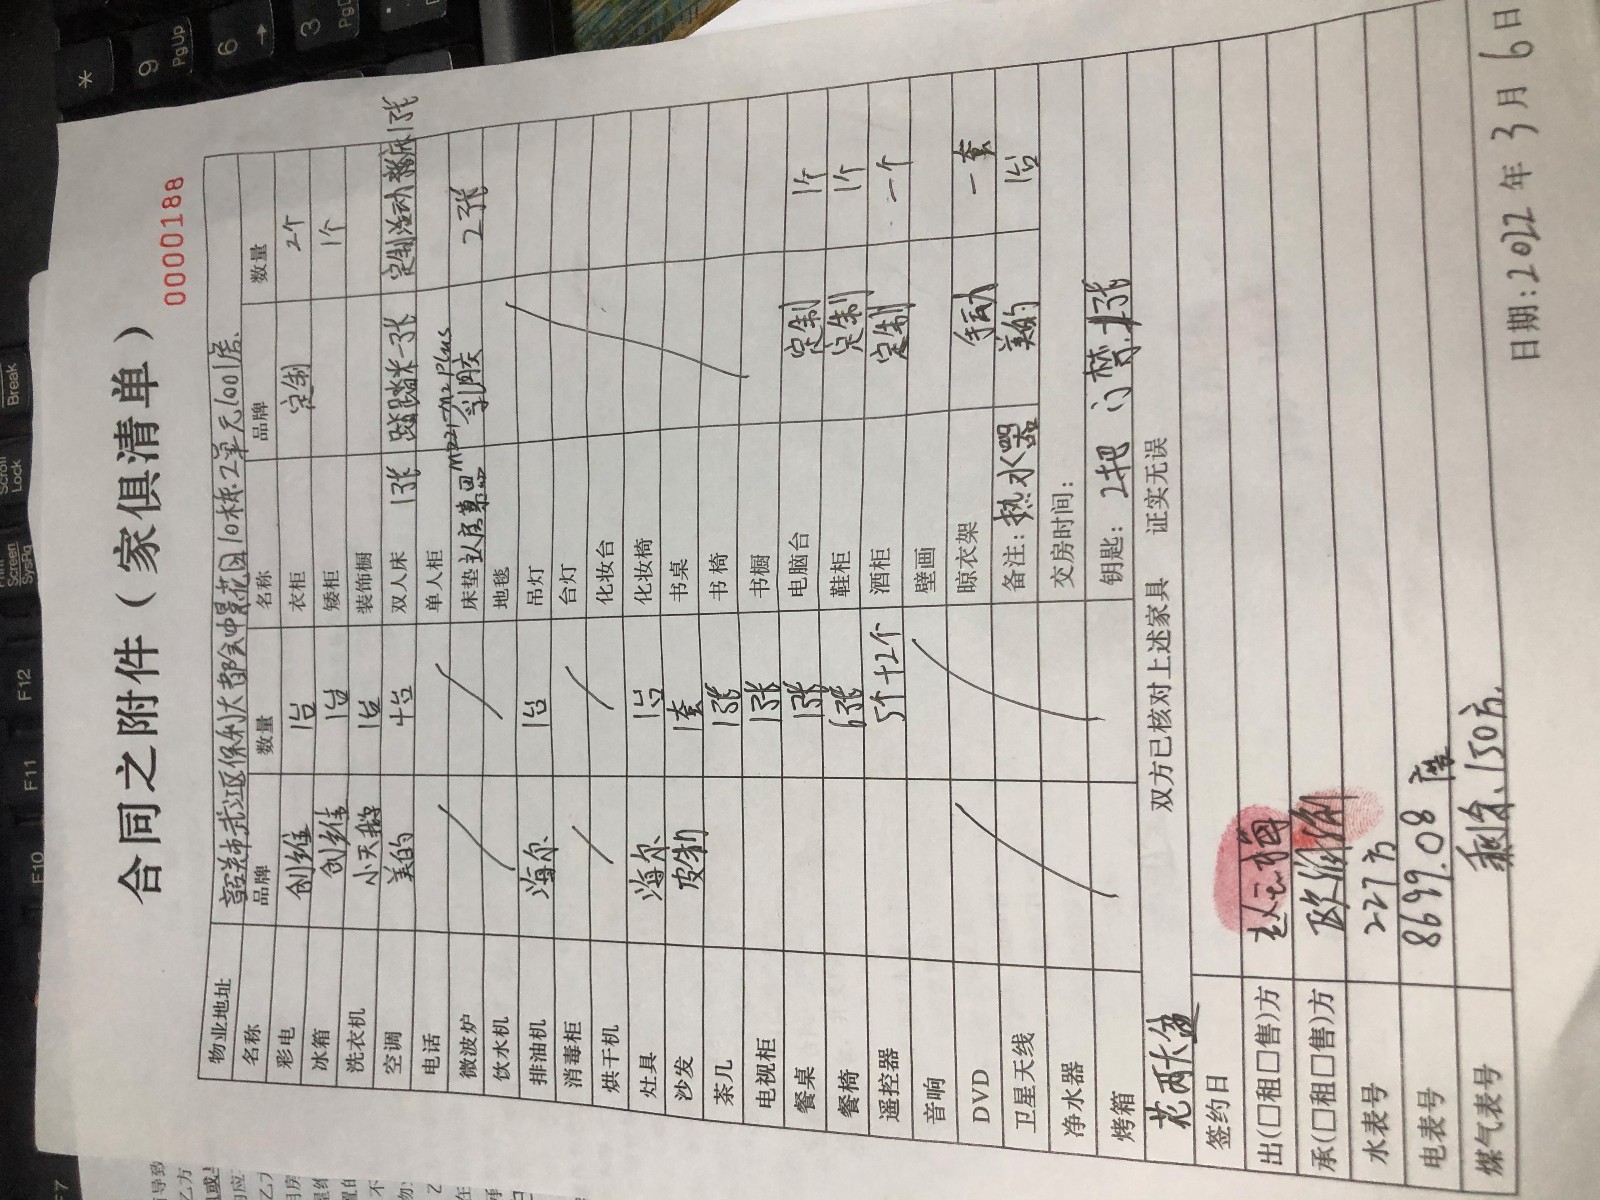 合同之附件（家俱清单）
0000188
物业地址 韶关市武江区保利大都会中景花园10栋2单元1001房.
名称 品牌 数量 名称 品牌 数量
彩电 创维 1台 衣柜 定制 2个
冰箱 创维 1台 矮柜 1个
洗衣机 小天鹅 1台 装饰橱
空调 美的 4台 双人床 1张 踏踏米一张 定制活动 床1张
电话 单人柜
微波炉 床垫 乳胶 2张
饮水机 地毯
排油机 海尔 1台 吊灯
消毒柜 台灯
烘干机 化妆台
灶具 海尔 1台 化妆椅
沙发 皮制 1套 书桌
茶几 1张 书椅
电视柜 1张 书橱
餐桌 1张 电脑台 定制 1个
餐椅 6张 鞋柜 定制 1个
遥控器 5个+2个 酒柜 定制 一个
音响 壁画
DVD 晾衣架 手动 一套
卫星天线 备注：热水器 美的 1台
净水器 交房时间：
烤箱 钥匙：2把 门禁
花两大盆 双方已核对上述家具 证实无误
签约日
出(□租□售)方
承(□租□售)方 欧
水表号 227方
电表号 8699.08
煤气表号 剩余150方.
日期:2022年3月6日
*
9
PgUp
6
→
3
Break
Scroll
Lock
Screen
SysRq
F12
F11
F10
F7